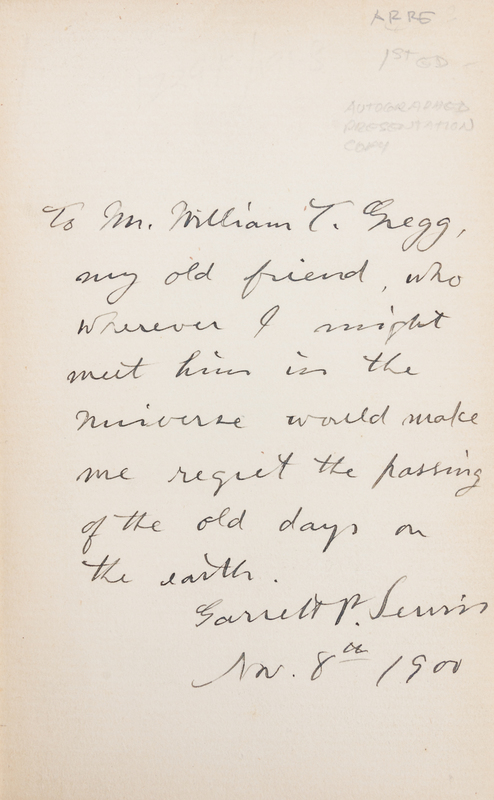 ARRE
1ST ED -
AUTOGRAPHED
PRESENTATION
COPY
To Mr. William T. Gregg,
my old friend, who
wherever I might
meet him in the
universe would make
me regret the passing
of the old days on
the earth.
Garrett P. Serviss
Nov. 8th 1900